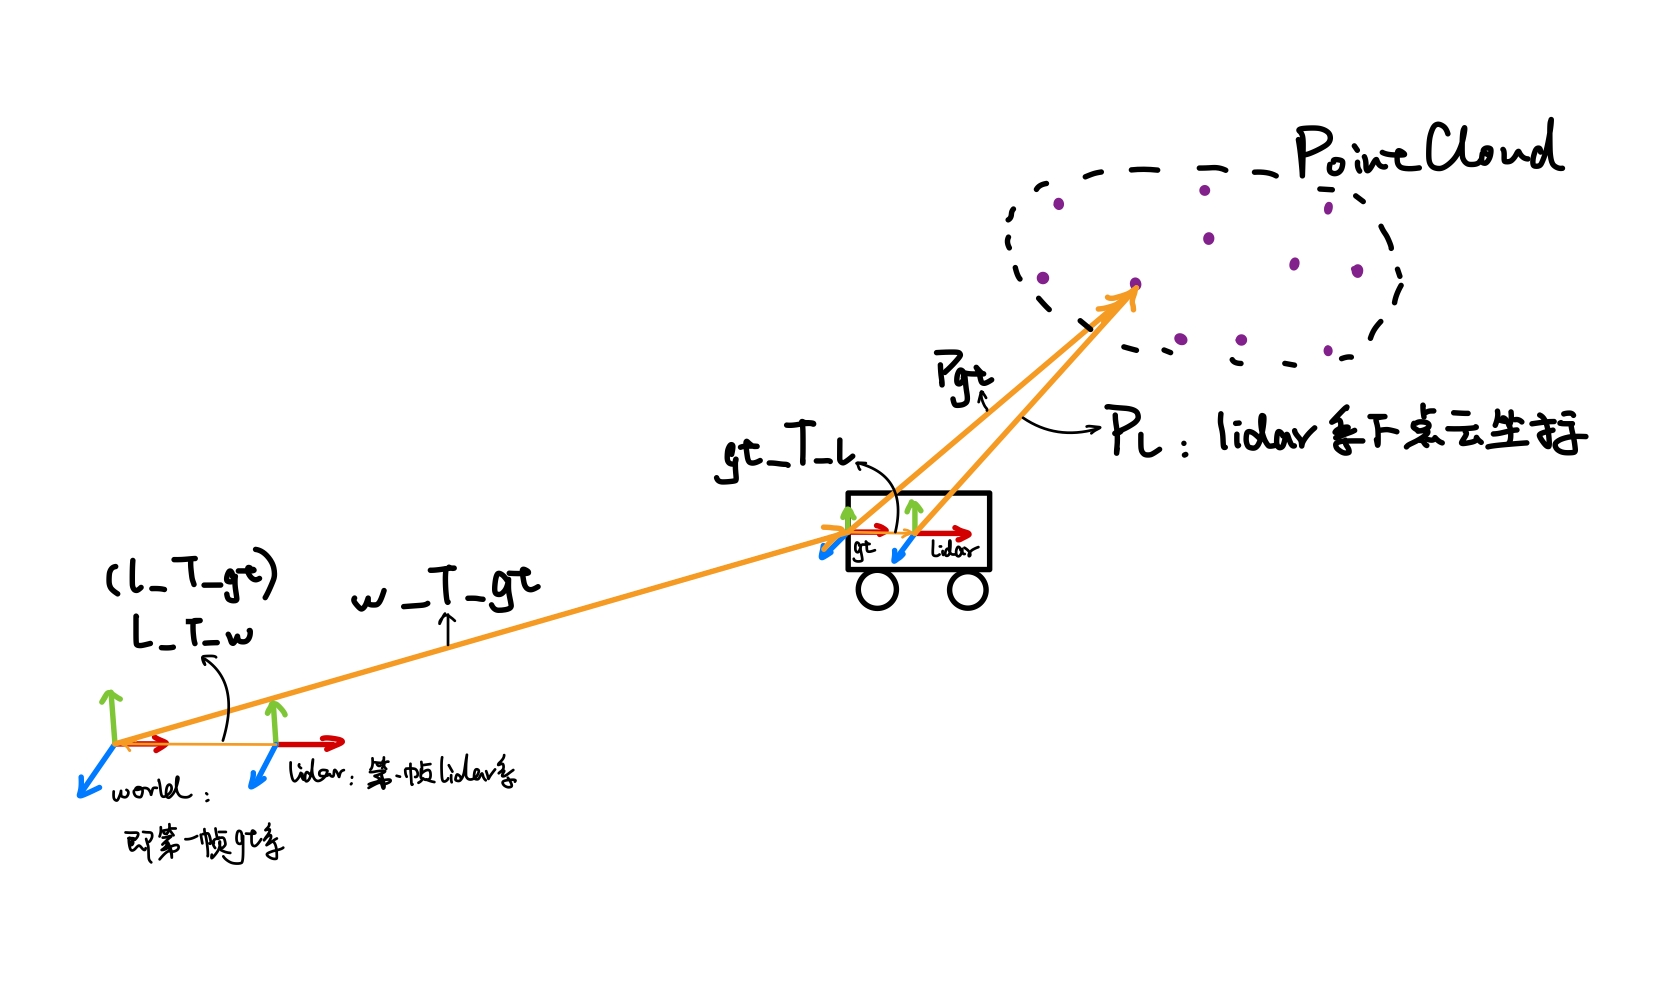 PointCloud
Pgt
PL：lidar系下点云坐标
gt_T_L
gt
lidar
(l_T_gt)
L_T_w
w_T_gt
world：
即第一帧gt系
lidar：第一帧lidar系